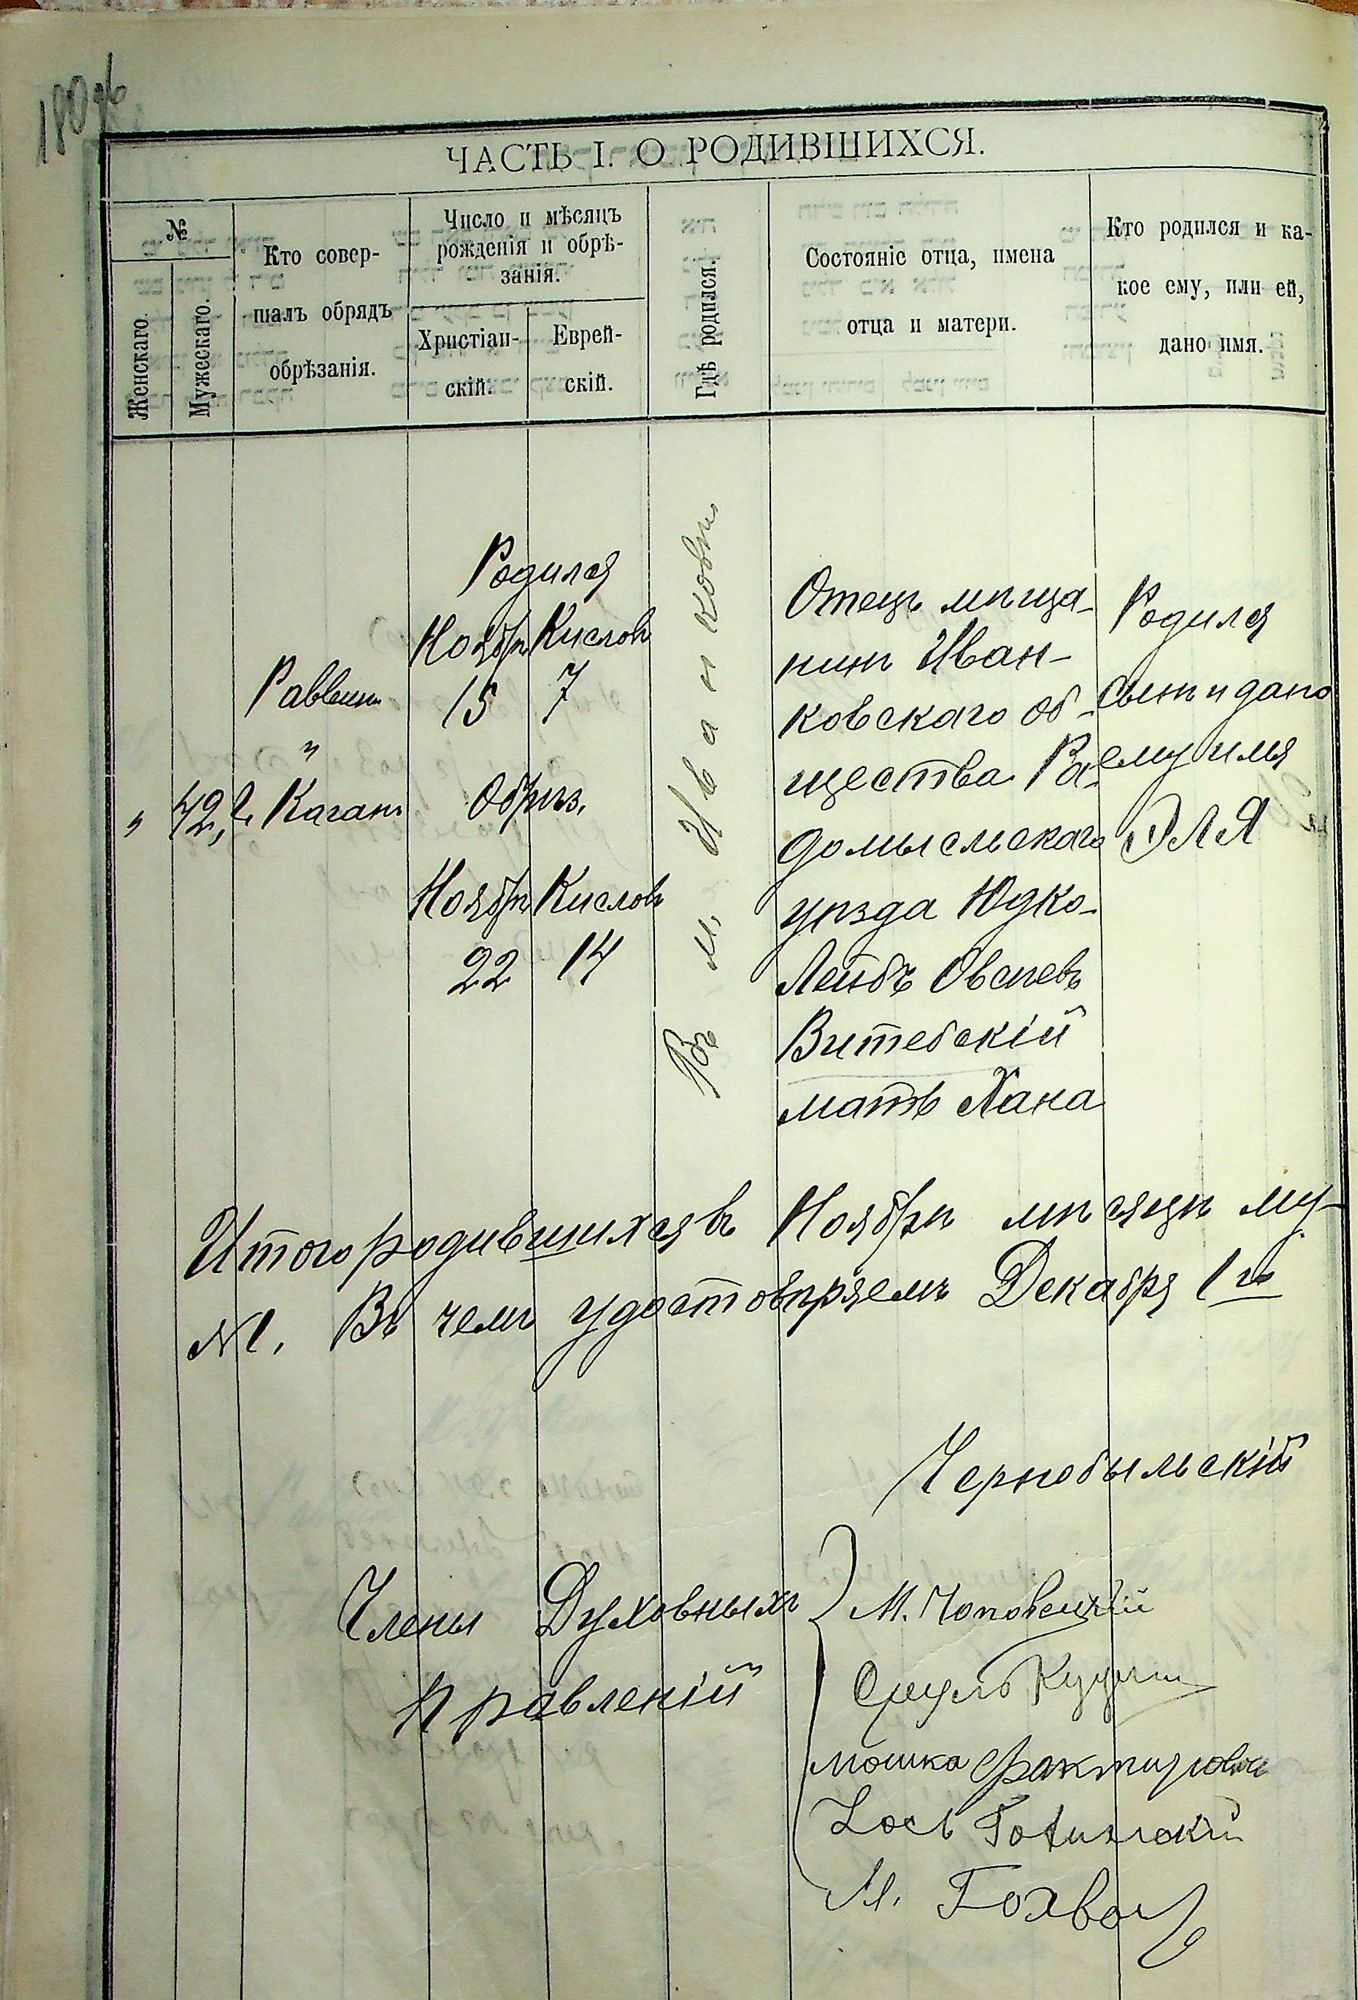 180 об
ЧАСТЬ I. О РОДИВШИХСЯ.
№
Женскаго.
Мужескаго.
Кто совер-
шалъ обрядъ
обрѣзанія.
Число и мѣсяцъ
рожденія и обрѣ-
занія.
Христіан-
скій.
Еврей-
скій.
Гдѣ родился.
Состояніе отца, имена
отца и матери.
Кто родился и ка-
кое ему, или ей,
дано имя.
" 42,
Раввинъ
"
Каганъ
Родился
Ноябрь Кислов
15 7
Обрѣз.
Ноябрь Кислов
22 14
Въ м. Иванковѣ
Отецъ мѣща-
нинъ Иван-
ковскаго об-
щества Ра-
домысльскаго
уѣзда Юдко-
Лейбъ Овсѣевъ
Витебскій
мать Хана
Родился
сынъ и дано
ему имя
ЭЛЯ
Итого родившихся въ Ноябрѣ мѣсяцѣ му-
№1. Въ чемъ удостовѣряемъ Декабря 1 го
Чернобыльскій
Члены Духовныхъ
Правленій
М.
Сруль
Мошка
М. Гохва